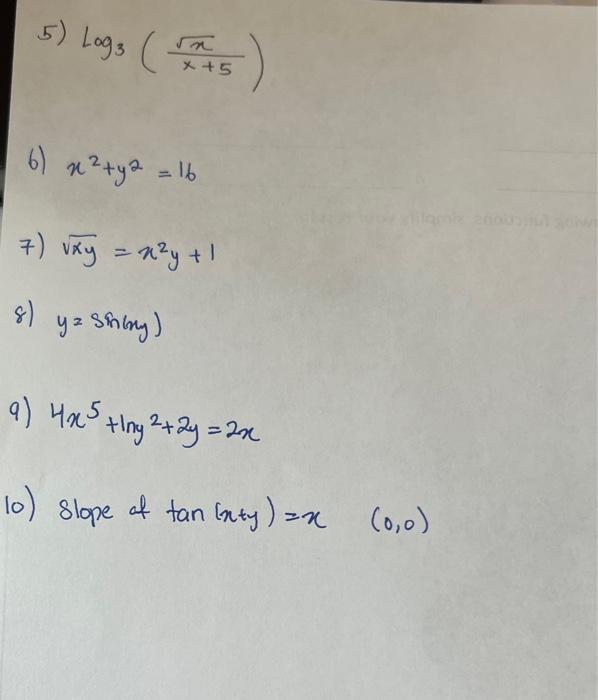 5) Log₃ (√x / x+5)
6) x²+y² = 16
7) √xy = x²y + 1
8) y = sin(xy)
9) 4x⁵ + lny² + 2y = 2x
10) Slope of tan(x+y) = x (0,0)